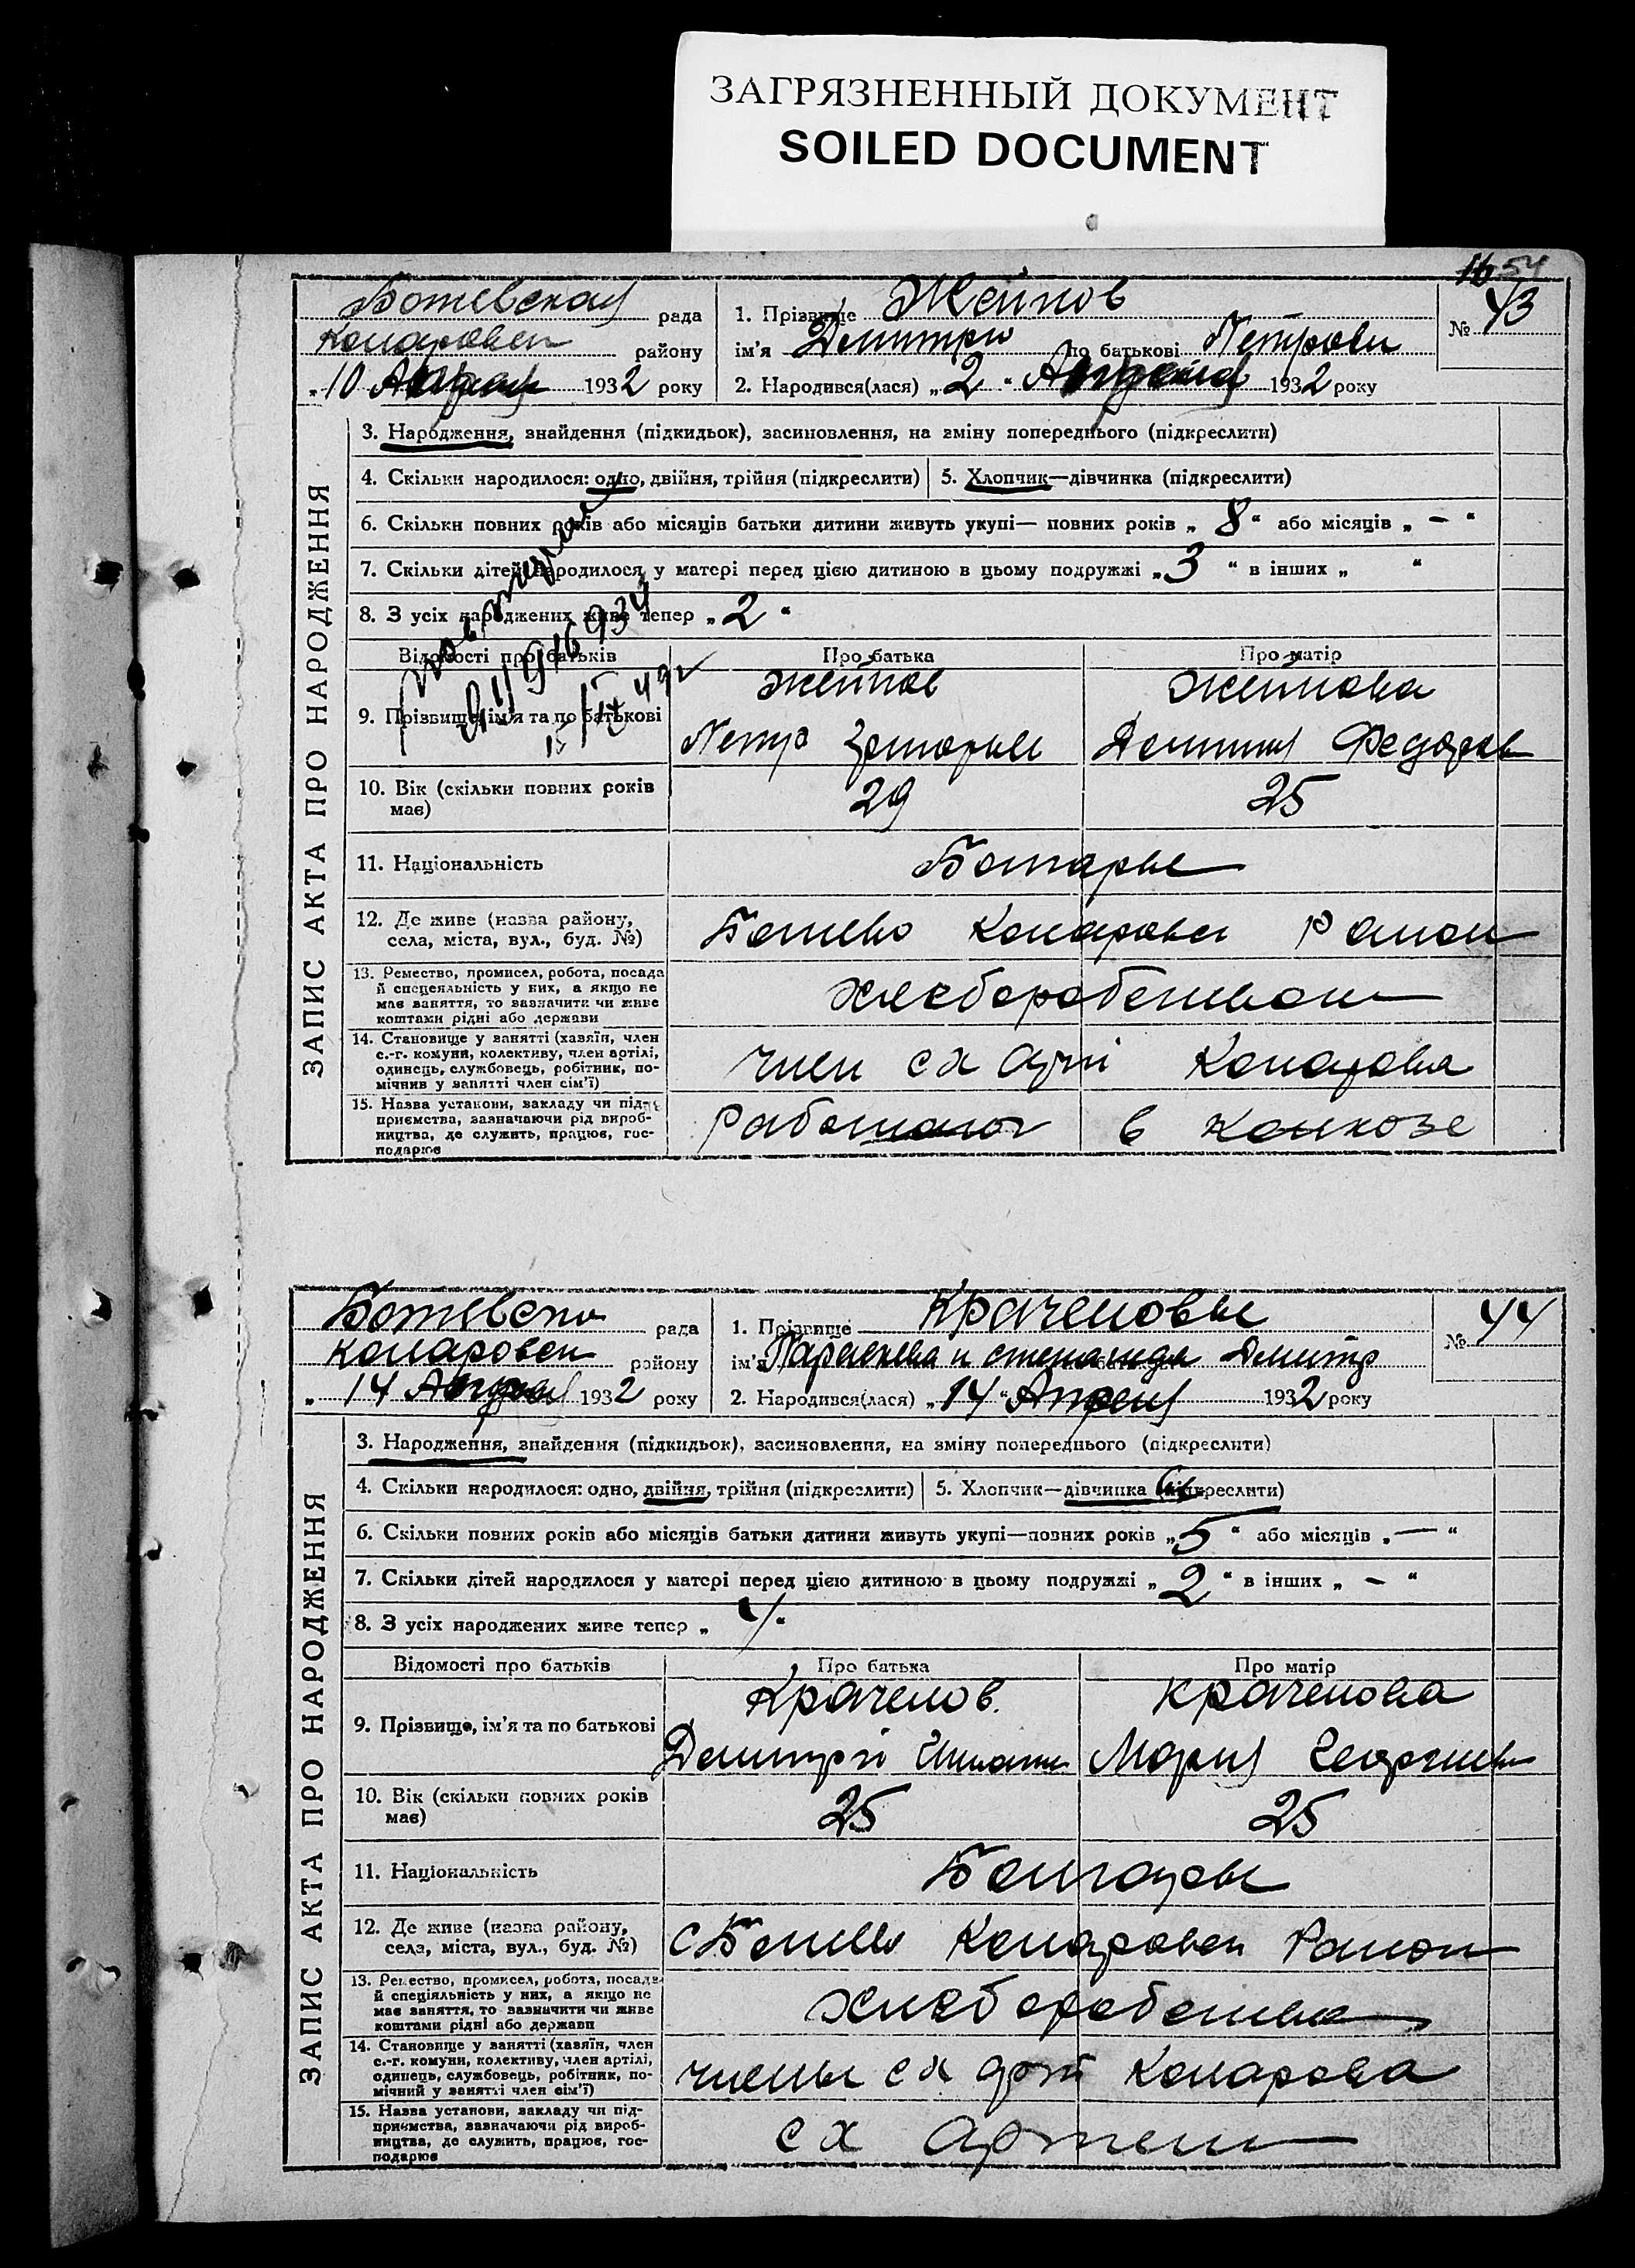 ЗАГРЯЗНЕННЫЙ ДОКУМЕНТ
SOILED DOCUMENT
16 54
Ботевская рада
Коларовск району
„10 1932 року
1. Прізвище Жейнов
ім'я Дмитри по батькові Петрови
2. Народився(лася) „2“ 1932 року
№ 43
ЗАПИС АКТА ПРО НАРОДЖЕННЯ
3. Народження, знайдення (підкидьок), засиновлення, на зміну попереднього (підкреслити)
4. Скільки народилося: одно, двійня, трійня (підкреслити)
5. Хлопчик—дівчинка (підкреслити)
6. Скільки повних років або місяців батьки дитини живуть укупі— повних років „8“ або місяців „—“
7. Скільки дітей народилося у матері перед цією дитиною в цьому подружжі „3“ в інших „ “
8. З усіх народжених живе тепер „2“
Відомості про батьків Про батька Про матір
9. Прізвище, ім'я та по батькові
Жейнов Жейнова
Петр Федоров
10. Вік (скільки повних років має) 29 25
11. Національність Болгары
12. Де живе (назва району, села, міста, вул., буд. №)
Ботево Коларовск Район
13. Ремество, промисел, робота, посада
й спеціяльність у них, а якщо не
має заняття, то зазначити чи живе
коштами рідні або держави
хлеборобством
14. Становище у занятті (хазяїн, член
с.-г. комуни, колективу, член артілі,
одинець, службовець, робітник, по-
мічник у занятті член сім'ї)
член с х арт Коларова
15. Назва установи, закладу чи підп-
приємства, зазначаючи рід вироб-
ництва, де служить, працює, гос-
подарює
работают в колхозе
Ботевско рада
Коларовск району
„ 14 1932 року
1. Прізвище Краченовы
ім'я Параскева и степанида Дмитр
2. Народився(лася) „14“ Апреля 1932 року
№ 44
ЗАПИС АКТА ПРО НАРОДЖЕННЯ
3. Народження, знайдення (підкидьок), засиновлення, на зміну попереднього (підкреслити)
4. Скільки народилося: одно, двійня, трійня (підкреслити)
5. Хлопчик—дівчинка (підкреслити)
6. Скільки повних років або місяців батьки дитини живуть укупі—повних років „5“ або місяців „—“
7. Скільки дітей народилося у матері перед цією дитиною в цьому подружжі „2“ в інших „—“
8. З усіх народжених живе тепер „4“
Відомості про батьків Про батька Про матір
9. Прізвище, ім'я та по батькові
Краченов. Краченова
Дмитрий Мария Георгиев
10. Вік (скільки повних років має) 25 25
11. Національність Болгары
12. Де живе (назва району, села, міста, вул., буд. №)
с Ботево Коларовск Район
13. Ремество, промисел, робота, посада
й спеціяльність у них, а якщо не
має заняття, то зазначити чи живе
коштами рідні або держави
хлеборобства
14. Становище у занятті (хазяїн, член
с.-г. комуни, колективу, член артілі,
одинець, службовець, робітник, по-
мічний у занятті член сім'ї)
члены с х арт Коларова
15. Назва установи, закладу чи під-
приємства, зазначаючи рід вироб-
ництва, де служить, працює, гос-
подарює
с х артели